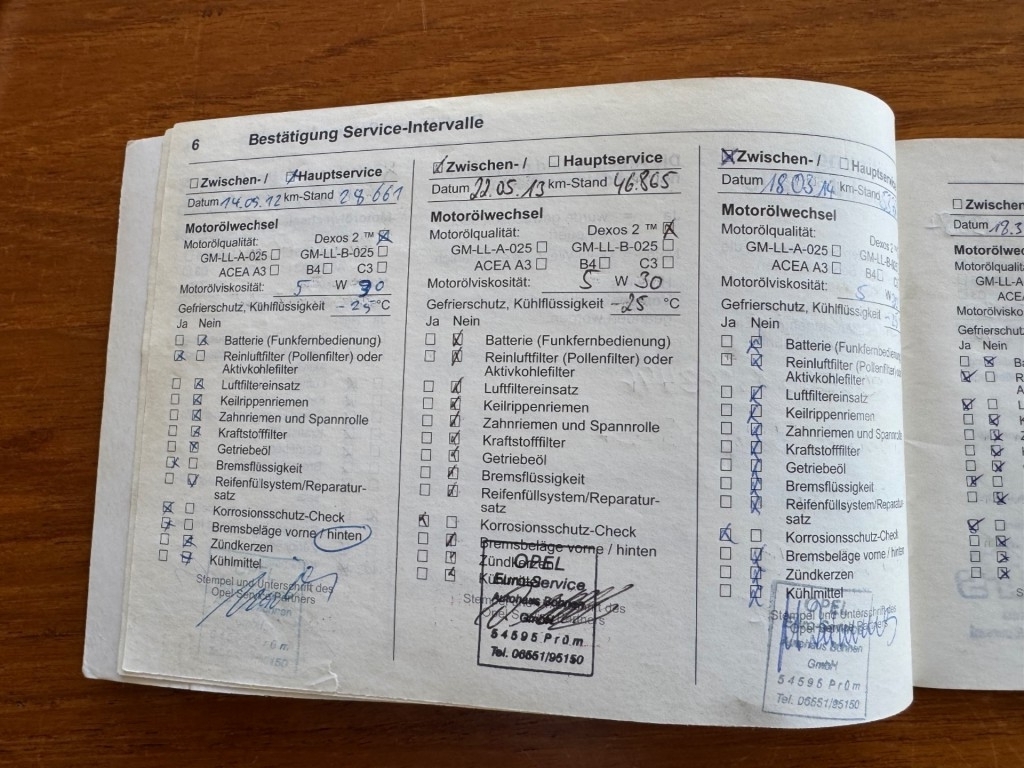 6 Bestätigung Service-Intervalle
Zwischen- / Hauptservice
Datum 14.05.12 km-Stand 28 661
Motorölwechsel
Motorölqualität: Dexos 2 ™
GM-LL-A-025 GM-LL-B-025
ACEA A3 B4 C3
Motorölviskosität: 5 W 30
Gefrierschutz, Kühlflüssigkeit -25 °C
Ja Nein
Batterie (Funkfernbedienung)
Reinluftfilter (Pollenfilter) oder
Aktivkohlefilter
Luftfiltereinsatz
Keilrippenriemen
Zahnriemen und Spannrolle
Kraftstofffilter
Getriebeöl
Bremsflüssigkeit
Reifenfüllsystem/Reparatur-
satz
Korrosionsschutz-Check
Bremsbeläge vorne / hinten
Zündkerzen
Kühlmittel
Stempel und Unterschrift des
Opel Service Partners
Zwischen- / Hauptservice
Datum 22.05.13 km-Stand 46.865
Motorölwechsel
Motorölqualität: Dexos 2 ™
GM-LL-A-025 GM-LL-B-025
ACEA A3 B4 C3
Motorölviskosität: 5 W 30
Gefrierschutz, Kühlflüssigkeit -25 °C
Ja Nein
Batterie (Funkfernbedienung)
Reinluftfilter (Pollenfilter) oder
Aktivkohlefilter
Luftfiltereinsatz
Keilrippenriemen
Zahnriemen und Spannrolle
Kraftstofffilter
Getriebeöl
Bremsflüssigkeit
Reifenfüllsystem/Reparatur-
satz
Korrosionsschutz-Check
Bremsbeläge vorne / hinten
Zündkerzen
OPEL
Euro-Service
Autohaus Bohnen
GmbH
54595 Prüm
Tel. 06551/95150
Zwischen- / Hauptservice
Datum 18.03.14 km-Stand
Motorölwechsel
Motorölqualität: Dexos 2
GM-LL-A-025 GM-LL-B-025
ACEA A3 B4
Motorölviskosität: 5 W
Gefrierschutz, Kühlflüssigkeit
Ja Nein
Batterie (Funkfernbedienung
Reinluftfilter (Pollenfilter)
Aktivkohlefilter
Luftfiltereinsatz
Keilrippenriemen
Zahnriemen und Spannrolle
Kraftstofffilter
Getriebeöl
Bremsflüssigkeit
Reifenfüllsystem/Reparatur-
satz
Korrosionsschutz-Check
Bremsbeläge vorne / hinten
Zündkerzen
Kühlmittel
Stempel und Unterschrift des
OPEL
Autohaus Bohnen
GmbH
54595 Prüm
Tel. 06551/95150
Zwischen
Datum 18.3
Motorölwe
Motorölqualitä
GM-LL-A
ACE
Motorölvisko
Gefrierschutz
Ja Nein
Ba
R
A
L